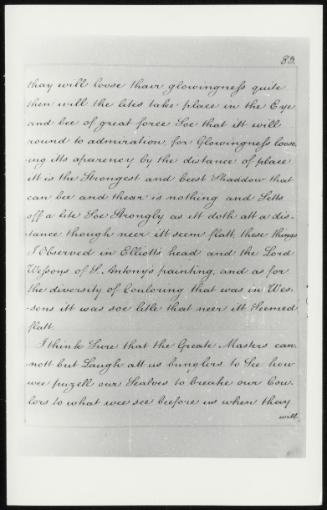 89.
thay will loose thair glowingness quite
then will the lites take place in the Eye
and bee of great force Soe that itt will
round to admiration, for Glowingness loose,
ing itts aparency by the distance of place
itt is the Strongest and best Shaddow that
can bee and thear is nothing and Setts
off a lite Soe Strongly as itt doth att a dis-
tance though neer itt seem flatt, these things
I Observed in Elliotts head and the Lord
Wessons of S. Antonys painting, and as for
the diversity of Coulloring that was in Wes-
sons itt was soe litle that neer itt Seemed
flatt.
I think Sure that the Greate Masters can
nott but Laugh att us bunglers to See how
wee puzell our Sealves to breake our Cow,
lors to what wee see beefore us when thay
will